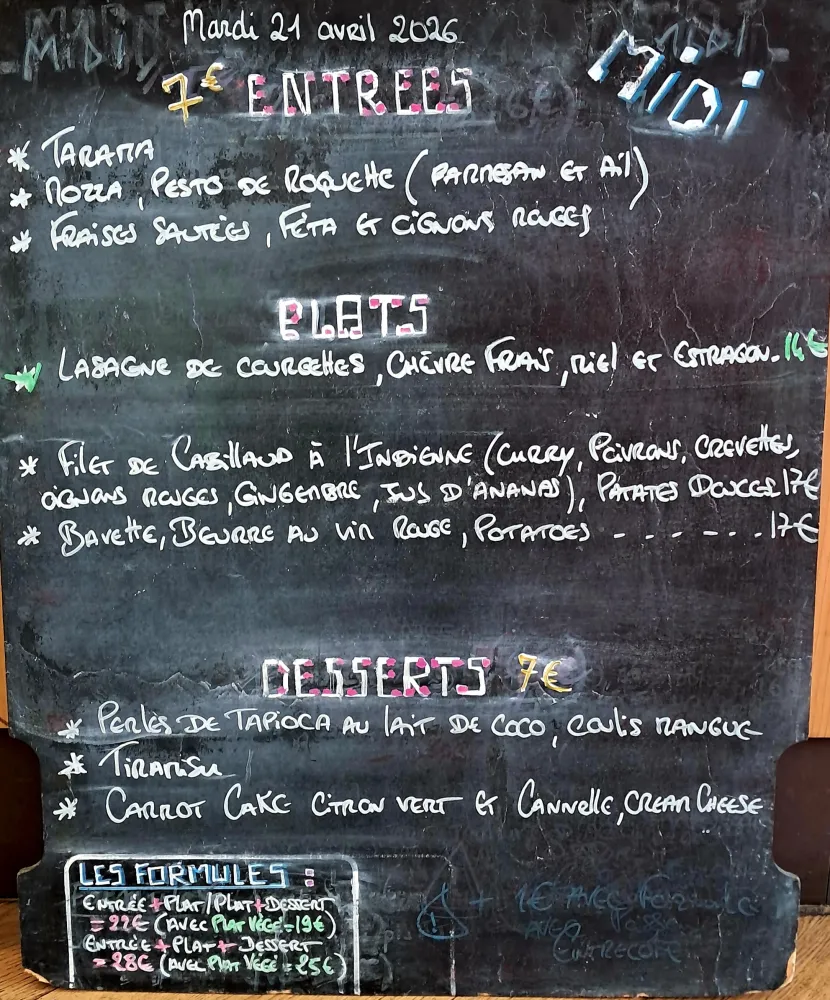 Mardi 21 avril 2026
Midi
7€ ENTREES
* TARAMA
* MOZZA, PESTO DE ROQUETTE (PARMESAN ET AIL)
* FRAISES SAUTÉES, FÉTA ET OIGNONS ROUGES
PLATS
* LASAGNE DE COURGETTES, CHÈVRE FRAIS, MIEL ET ESTRAGON. 14€
* FILET DE CABILLAUD À L'INDIENNE (CURRY, POIVRONS, CREVETTES,
OIGNONS ROUGES, GINGEMBRE, JUS D'ANANAS), PATATES DOUCES 17€
* BAVETTE, BEURRE AU VIN ROUGE, POTATOES - - - - - . . 17€
DESSERTS 7€
* PERLES DE TAPIOCA AU LAIT DE COCO, COULIS MANGUE
* TIRAMISU
* CARROT CAKE CITRON VERT ET CANNELLE, CREAM CHEESE
LES FORMULES :
ENTRÉE+PLAT/PLAT+DESSERT
= 22€ (AVEC PLAT VÉGÉ=19€)
ENTRÉE+PLAT+DESSERT
= 28€ (AVEC PLAT VÉGÉ=25€)
! + 1€ AVEC FORMULE
AVEC
ENTRECOTE